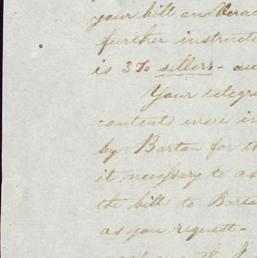 your bill on Vera
further instruct
is 3% sellers - au
Your telegra
contents were in
by Barton for th
it necessary to as
the bill to Barto
as you request -